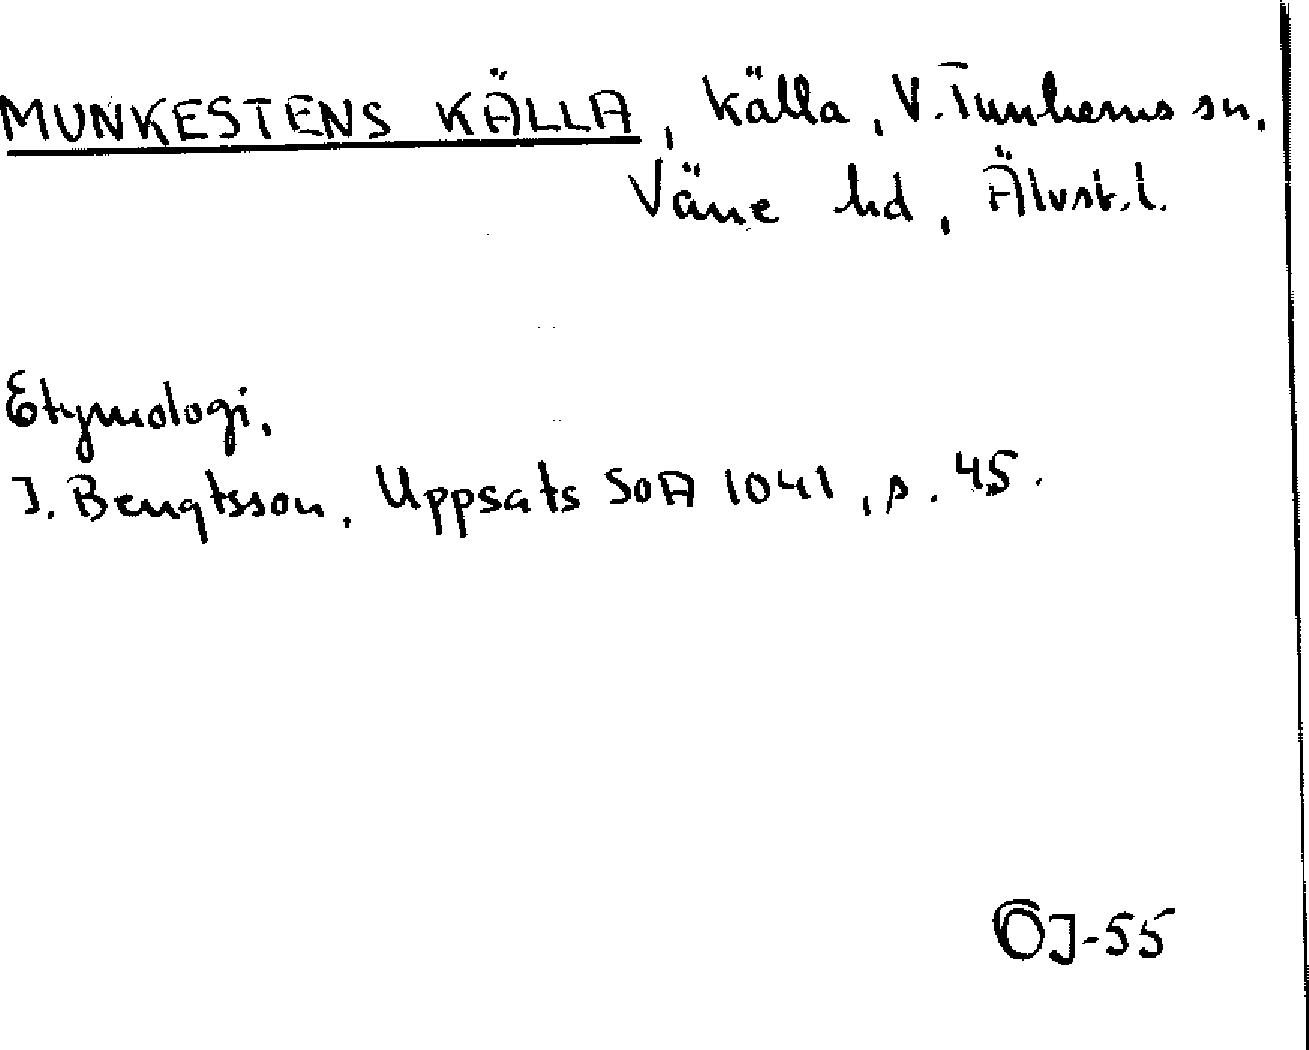 MUNKESTENS KÄLLA, källa, V. Tunhems sn,
Väne hd, Älvsb. l.
Etymologi,
J. Bengtsson, Uppsats SOA 1041, s. 45.
ÖJ-55